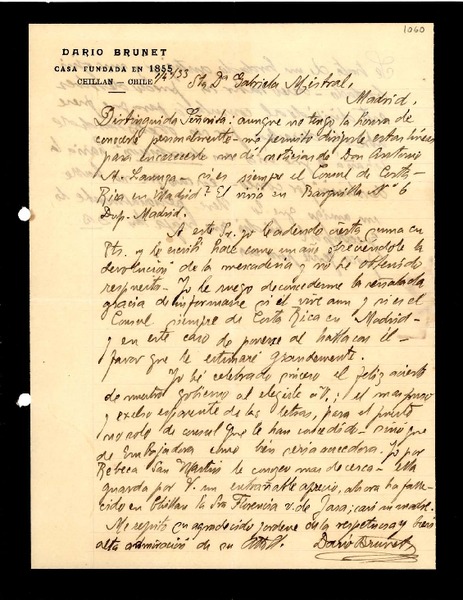 1060
DARIO BRUNET
CASA FUNDADA EN 1855
CHILLAN — CHILE
Sta Da Gabriela Mistral,
Madrid.
Distinguida Señorita: aunque no tengo la honra de
conocerle personalmente - me permito dirijirle estas líneas
para me dé noticias de Don Antonio
M. - si es siempre el Consul de Costa-
Rica en Madrid? El vivia en Barquillo No 6
Dup- Madrid.
A este Sr. yo le adeudo cierta suma en
Pts. y le escribí hace como un año ofreciendole la
devolucion de la mercaderia y no hé obtenido
respuesta - Yo le ruego de concederme la señalada
gracia de informarme si él vive aun y si es el
Consul siempre de Costa Rica en Madrid -
y en este caso de ponerse al habla con él -
favor que le estimaré grandemente.
Yo hé celebrado sincero el feliz acierto
de nuestro gobierno al elejirle á V.; el mas puro
y excelso exponente de las letras, para el puesto
no solo de consul que le han concedido - sinó que
de Embajadora como bien seria acreedora. Yo por
Rebeca San Martin le conozco mas de cerca - ella
guarda por V. un entrañable aprecio, ahora ha falle-
cido en Chillan la Sra Florencia v. de Jara; casi su madre.
Me repito su agradecido servidor de la respetuosa y bien
alta admiracion de su
Dario Brunet